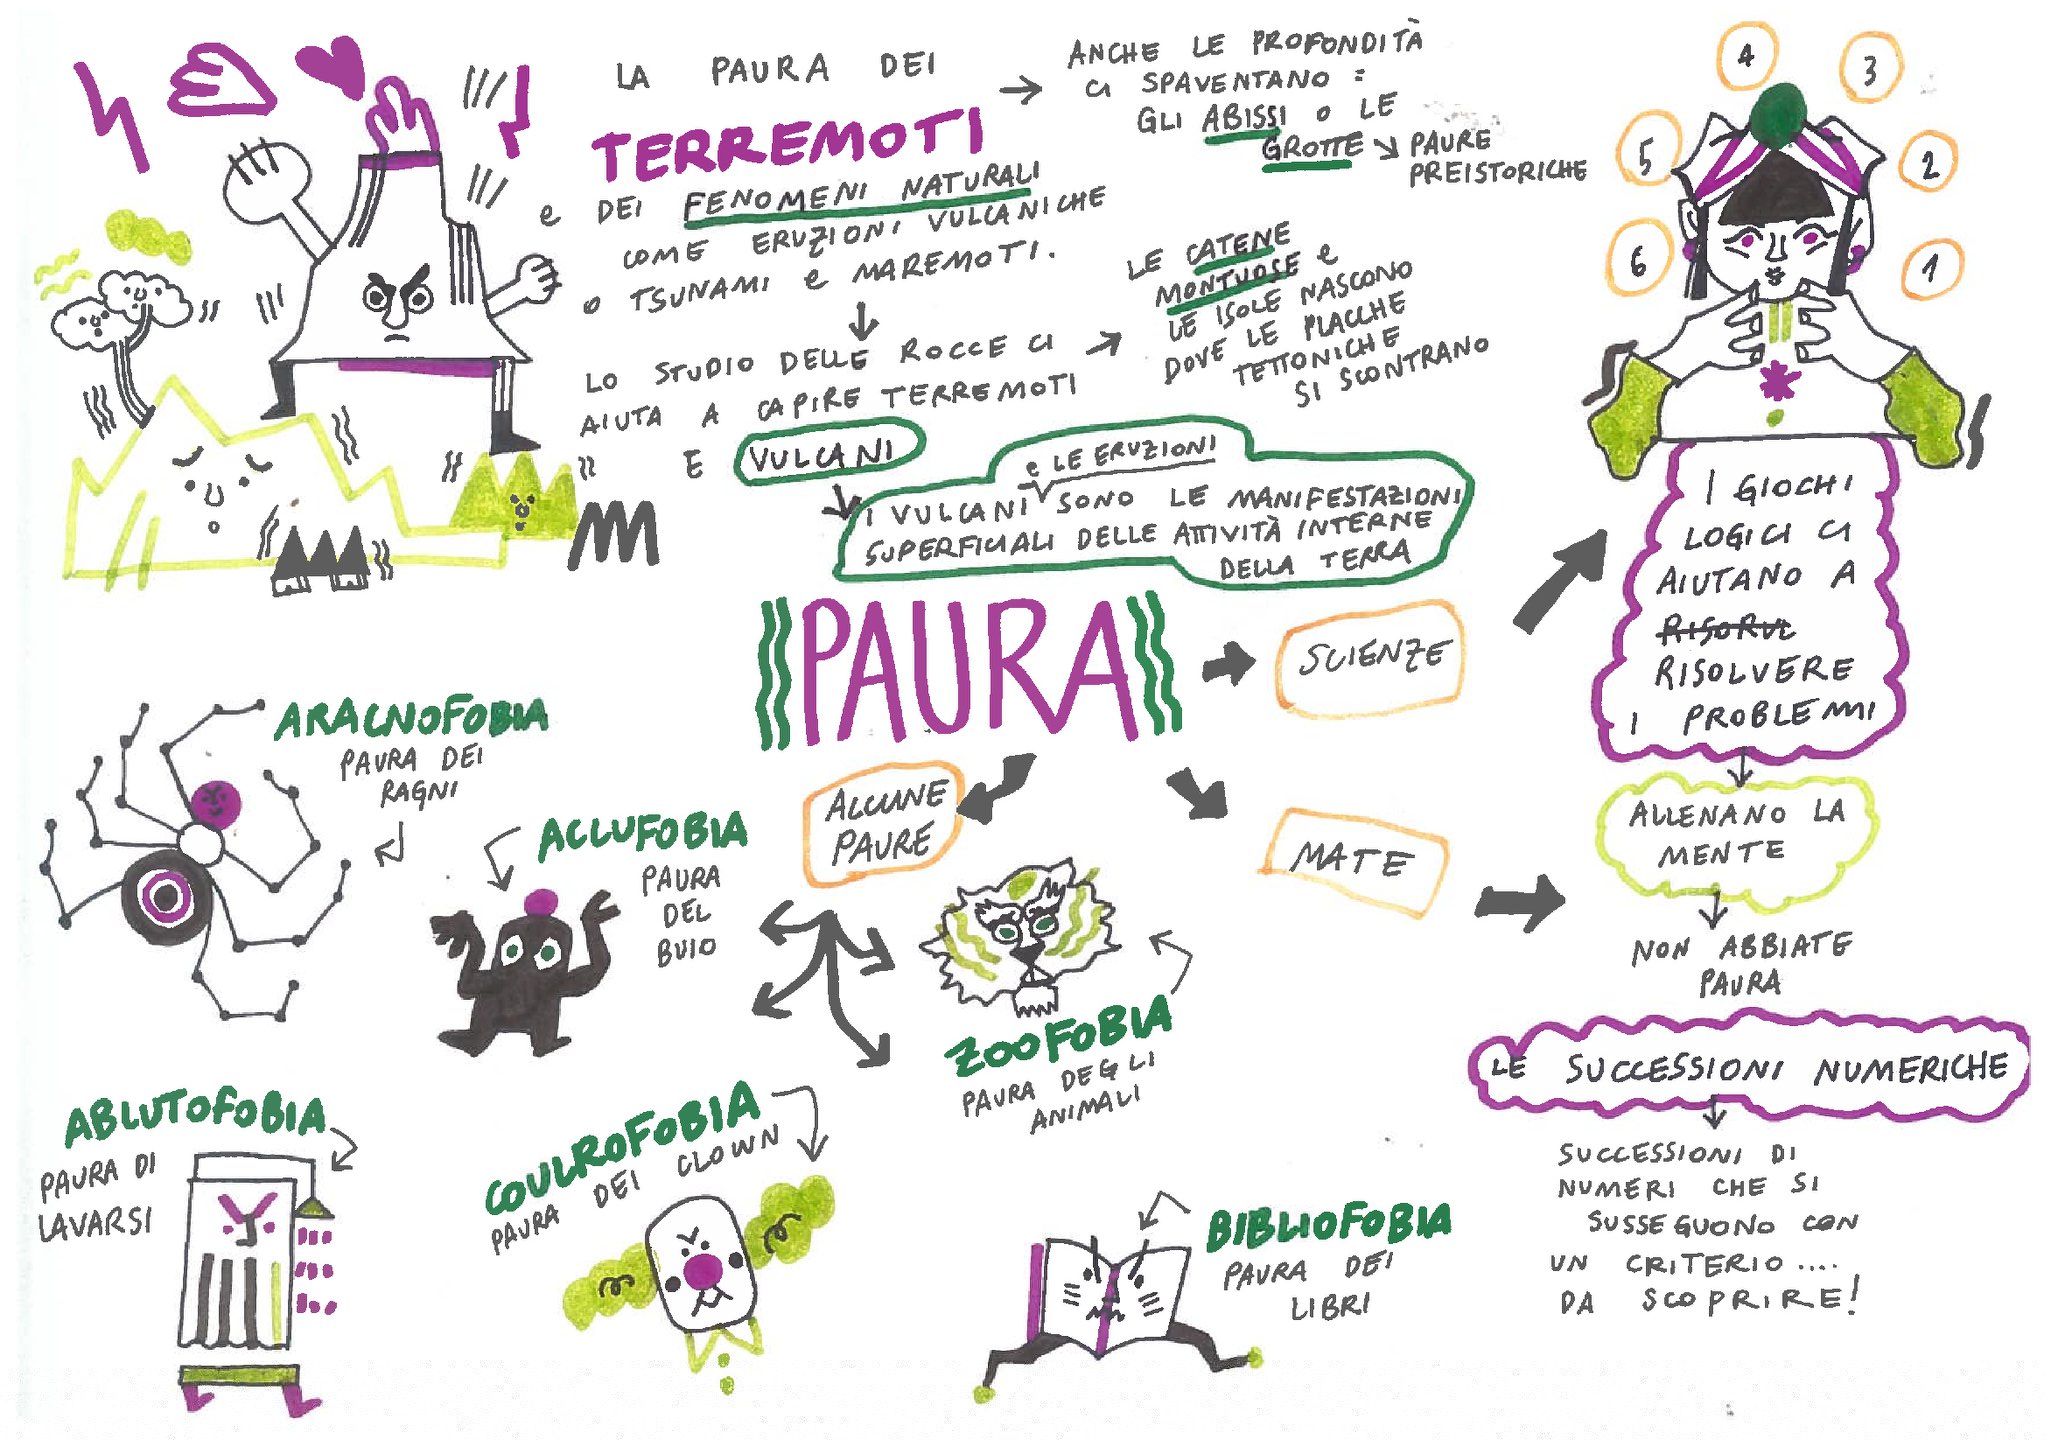 LA PAURA DEI
TERREMOTI
e DEI FENOMENI NATURALI
COME ERUZIONI VULCANICHE
O TSUNAMI e MAREMOTI.
ANCHE LE PROFONDITÀ
CI SPAVENTANO:
GLI ABISSI O LE
GROTTE
PAURE
PREISTORICHE
LO STUDIO DELLE ROCCE CI
AIUTA A CAPIRE TERREMOTI
E VULCANI
LE CATENE
MONTUOSE e
LE ISOLE NASCONO
DOVE LE PLACCHE
TETTONICHE
SI SCONTRANO
e LE ERUZIONI
I VULCANI SONO LE MANIFESTAZIONI
SUPERFICIALI DELLE ATTIVITÀ INTERNE
DELLA TERRA
PAURA
SCIENZE
MATE
ALCUNE
PAURE
ARACNOFOBIA
PAURA DEI
RAGNI
ACLUFOBIA
PAURA
DEL
BUIO
ZOOFOBIA
PAURA DEGLI
ANIMALI
ABLUTOFOBIA
PAURA DI
LAVARSI
COULROFOBIA
PAURA DEI CLOWN
BIBLIOFOBIA
PAURA DEI
LIBRI
4
3
5
2
6
1
I GIOCHI
LOGICI CI
AIUTANO A
RISORVL
RISOLVERE
I PROBLEMI
ALLENANO LA
MENTE
NON ABBIATE
PAURA
LE SUCCESSIONI NUMERICHE
SUCCESSIONI DI
NUMERI CHE SI
SUSSEGUONO CON
UN CRITERIO....
DA SCOPRIRE!